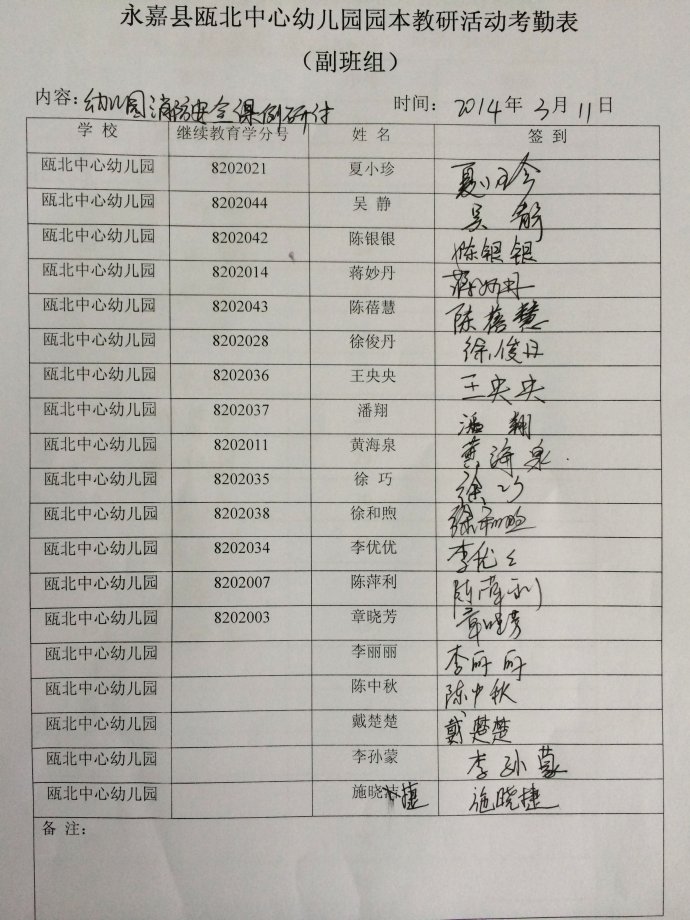 永嘉县瓯北中心幼儿园园本教研活动考勤表
（副班组）
内容：幼儿园消防安全课例研讨 时间：2014年3月11日
学 校 继续教育学分号 姓 名 签 到
瓯北中心幼儿园 8202021 夏小珍 夏小珍
瓯北中心幼儿园 8202044 吴 静 吴 静
瓯北中心幼儿园 8202042 陈银银 陈银银
瓯北中心幼儿园 8202014 蒋妙丹 蒋妙丹
瓯北中心幼儿园 8202043 陈蓓慧 陈蓓慧
瓯北中心幼儿园 8202028 徐俊丹 徐俊丹
瓯北中心幼儿园 8202036 王央央 王央央
瓯北中心幼儿园 8202037 潘翔 潘 翔
瓯北中心幼儿园 8202011 黄海泉 黄海泉
瓯北中心幼儿园 8202035 徐 巧 徐巧
瓯北中心幼儿园 8202038 徐和煦 徐和煦
瓯北中心幼儿园 8202034 李优优 李优优
瓯北中心幼儿园 8202007 陈萍利 陈萍利
瓯北中心幼儿园 8202003 章晓芳 章晓芳
瓯北中心幼儿园 李丽丽 李丽丽
瓯北中心幼儿园 陈中秋 陈中秋
瓯北中心幼儿园 戴楚楚 戴楚楚
瓯北中心幼儿园 李孙蒙 李孙蒙
瓯北中心幼儿园 施晓捷 施晓捷
备 注：